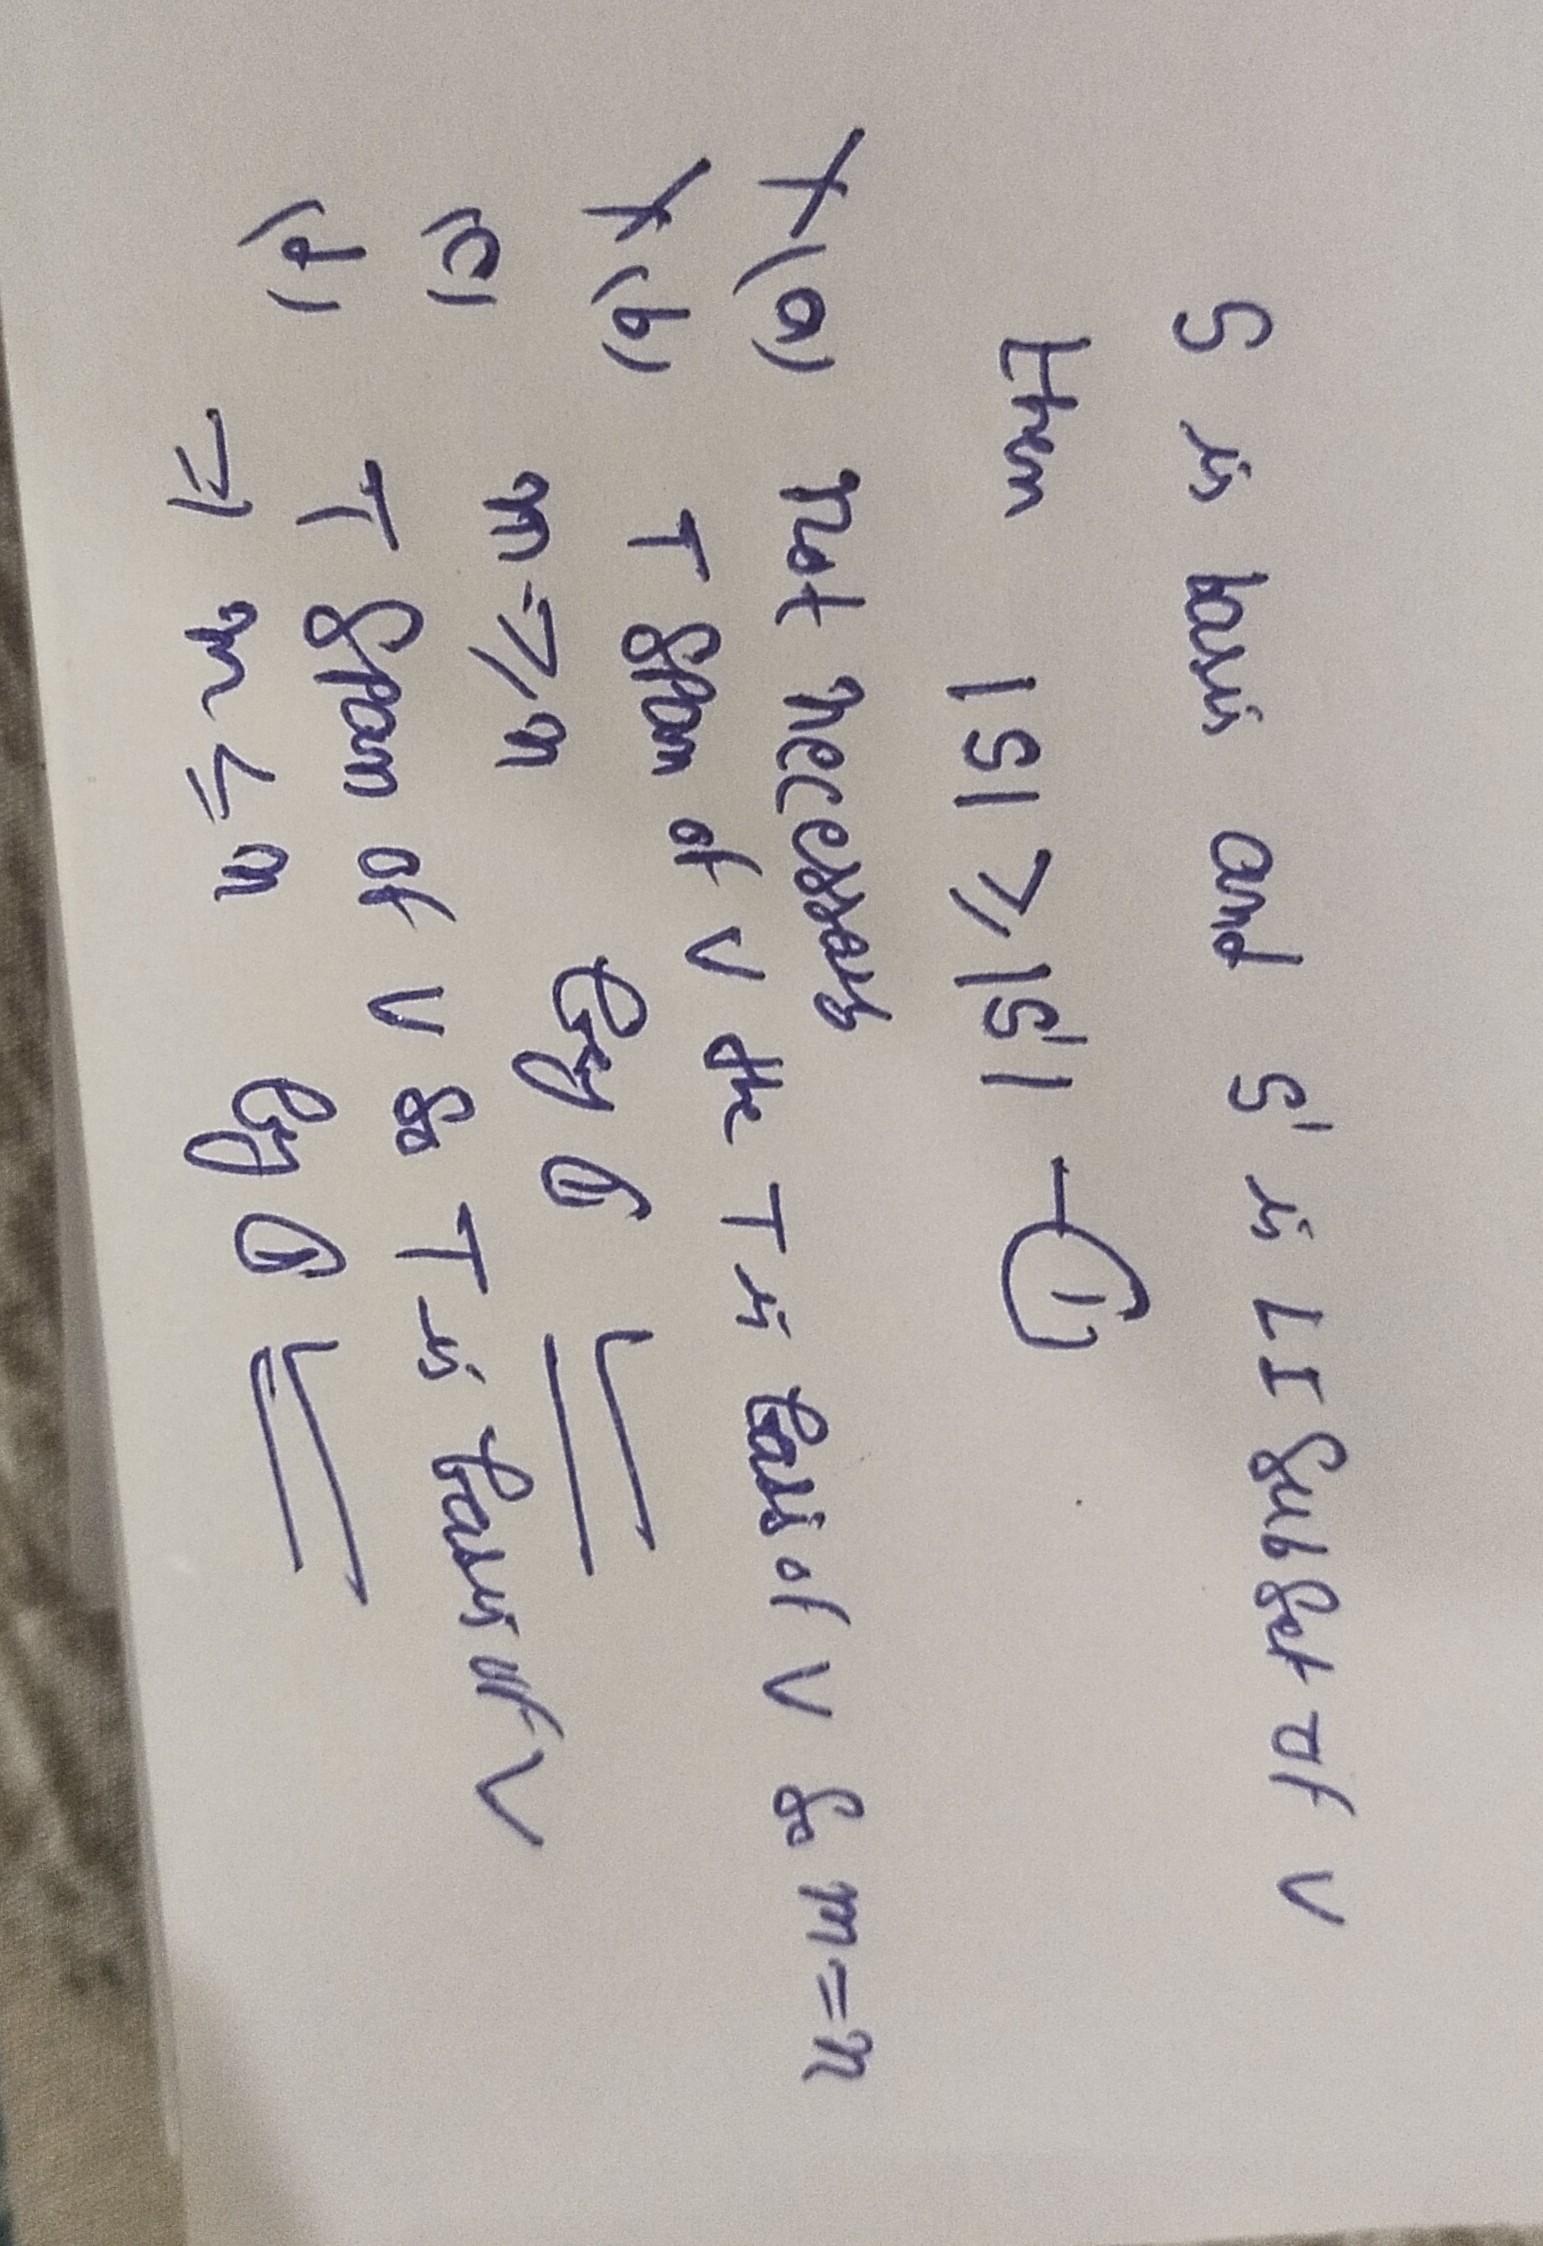 S is basis and S' is LI subset of V
then |S| ≥ |S'| — ①
X (a) Not necessary
X (b) T span of V T is basis of V & m=n
(c) m ≥ n by ①
(d) T span of V & T is basis of V
⇒ m ≤ n by ①